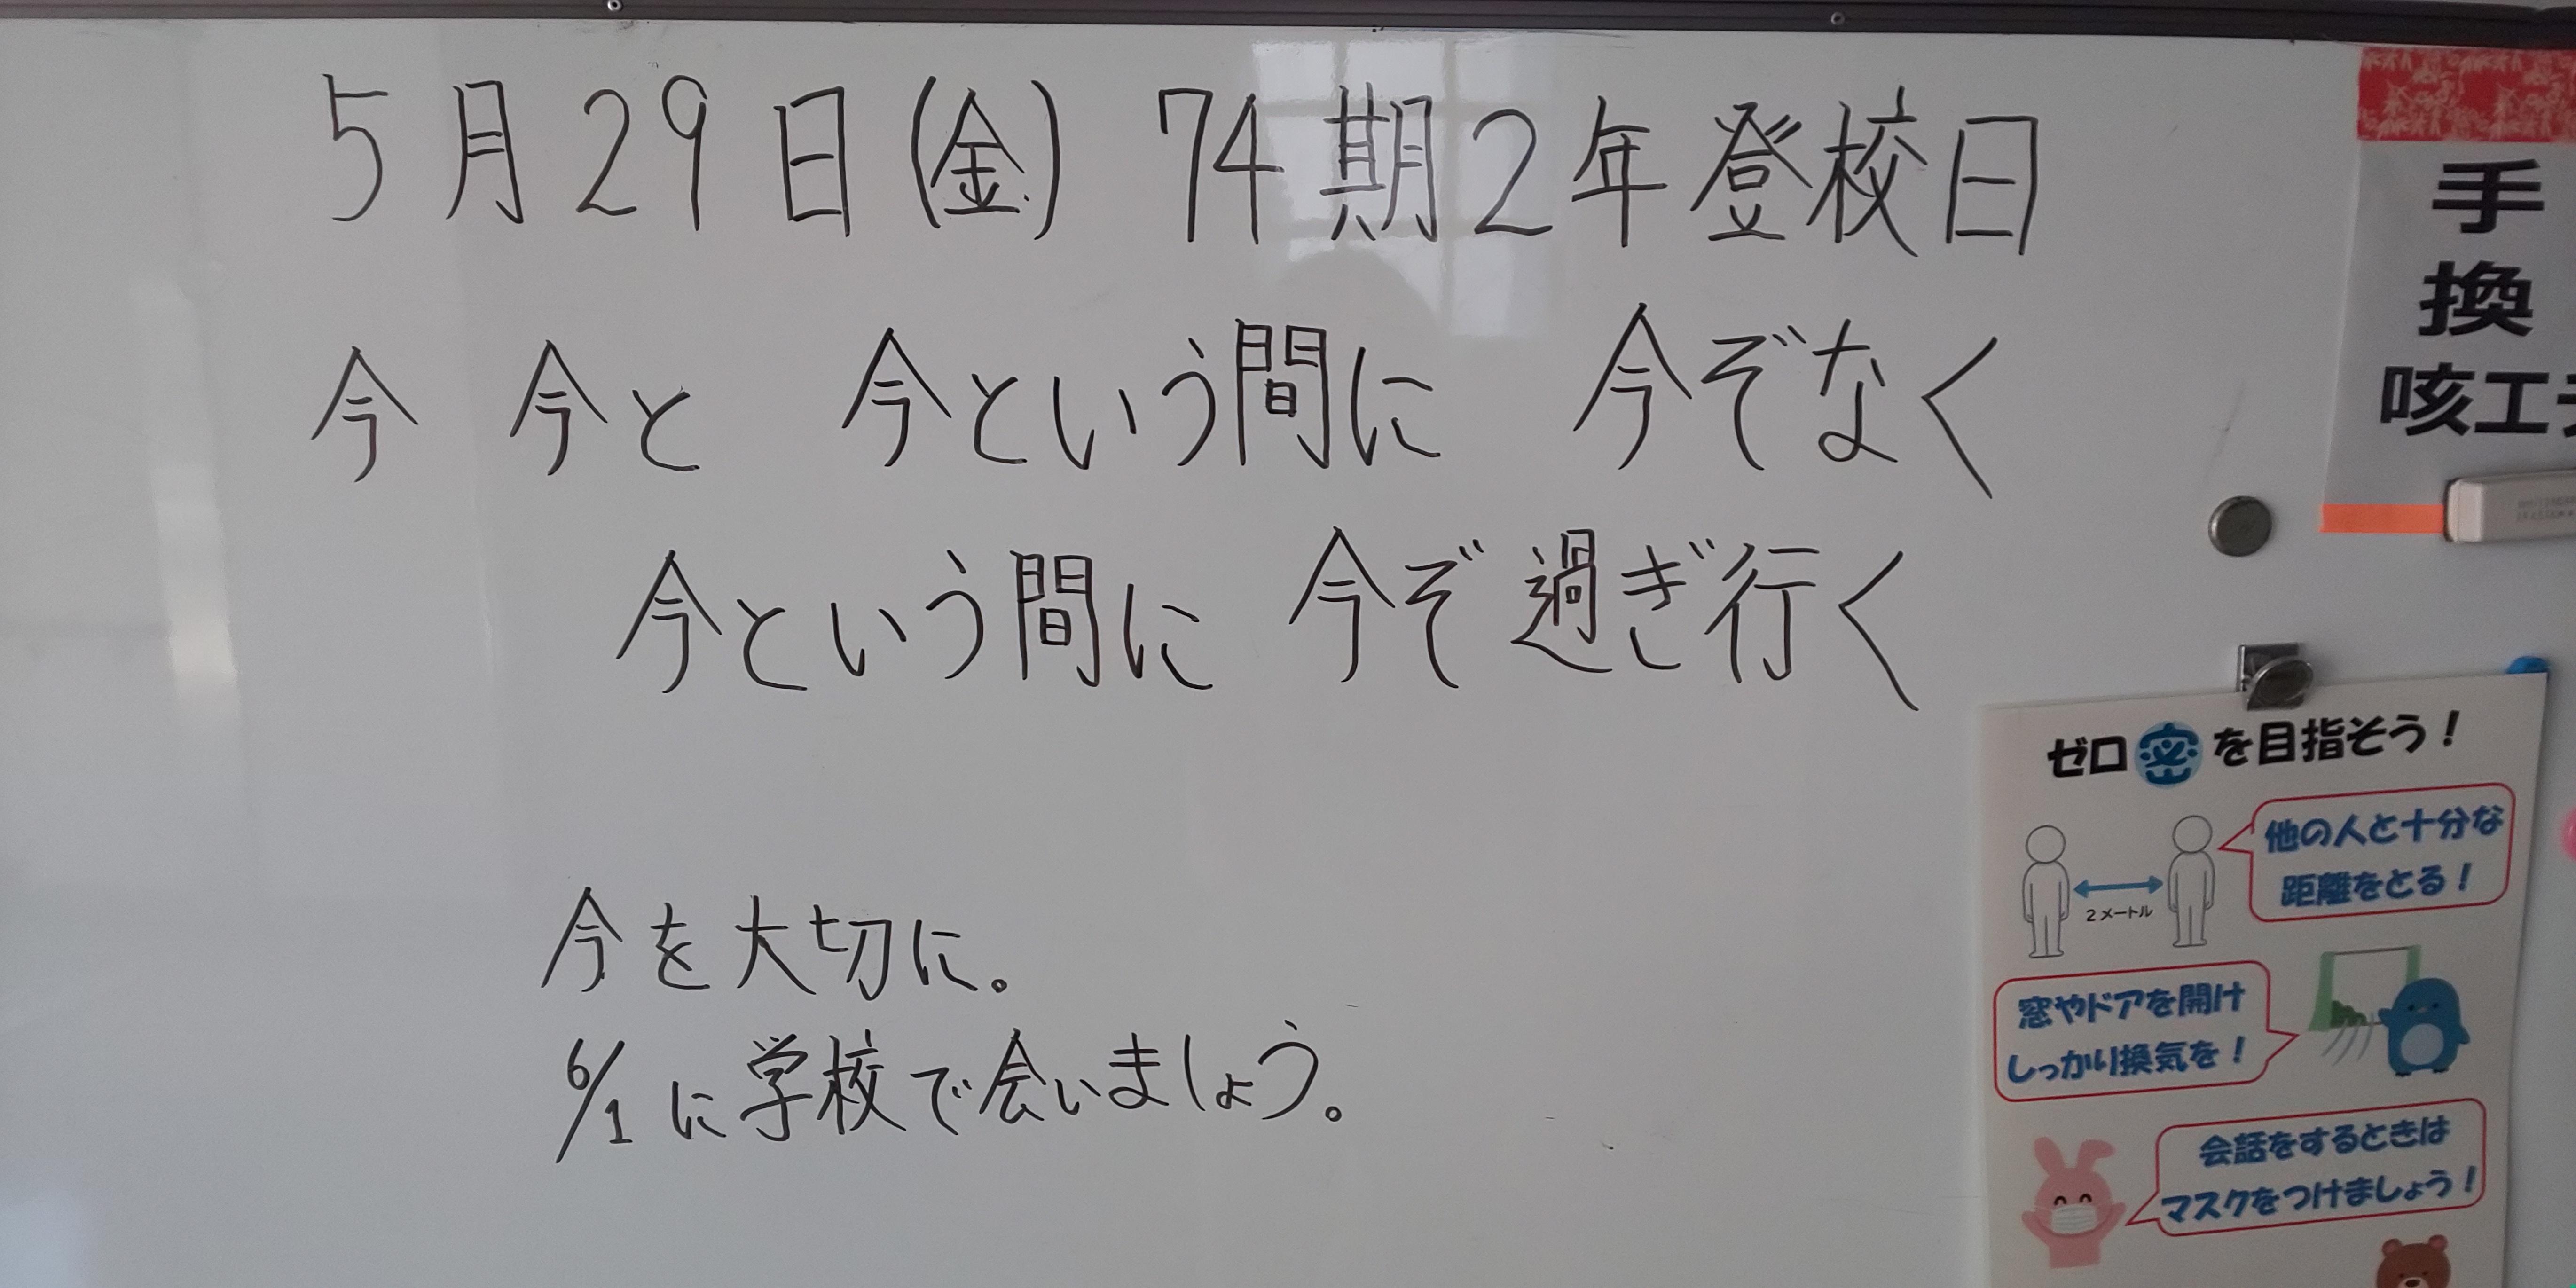 5月29日(金) 74期2年登校日
今 今と 今という間に 今ぞなく
今という間に 今ぞ過ぎ行く
今を大切に。
6/1に学校で会いましょう。
手
換
咳エ
ゼロ密を目指そう!
他の人と十分な
距離をとる!
2メートル
窓やドアを開け
しっかり換気を!
会話をするときは
マスクをつけましょう!